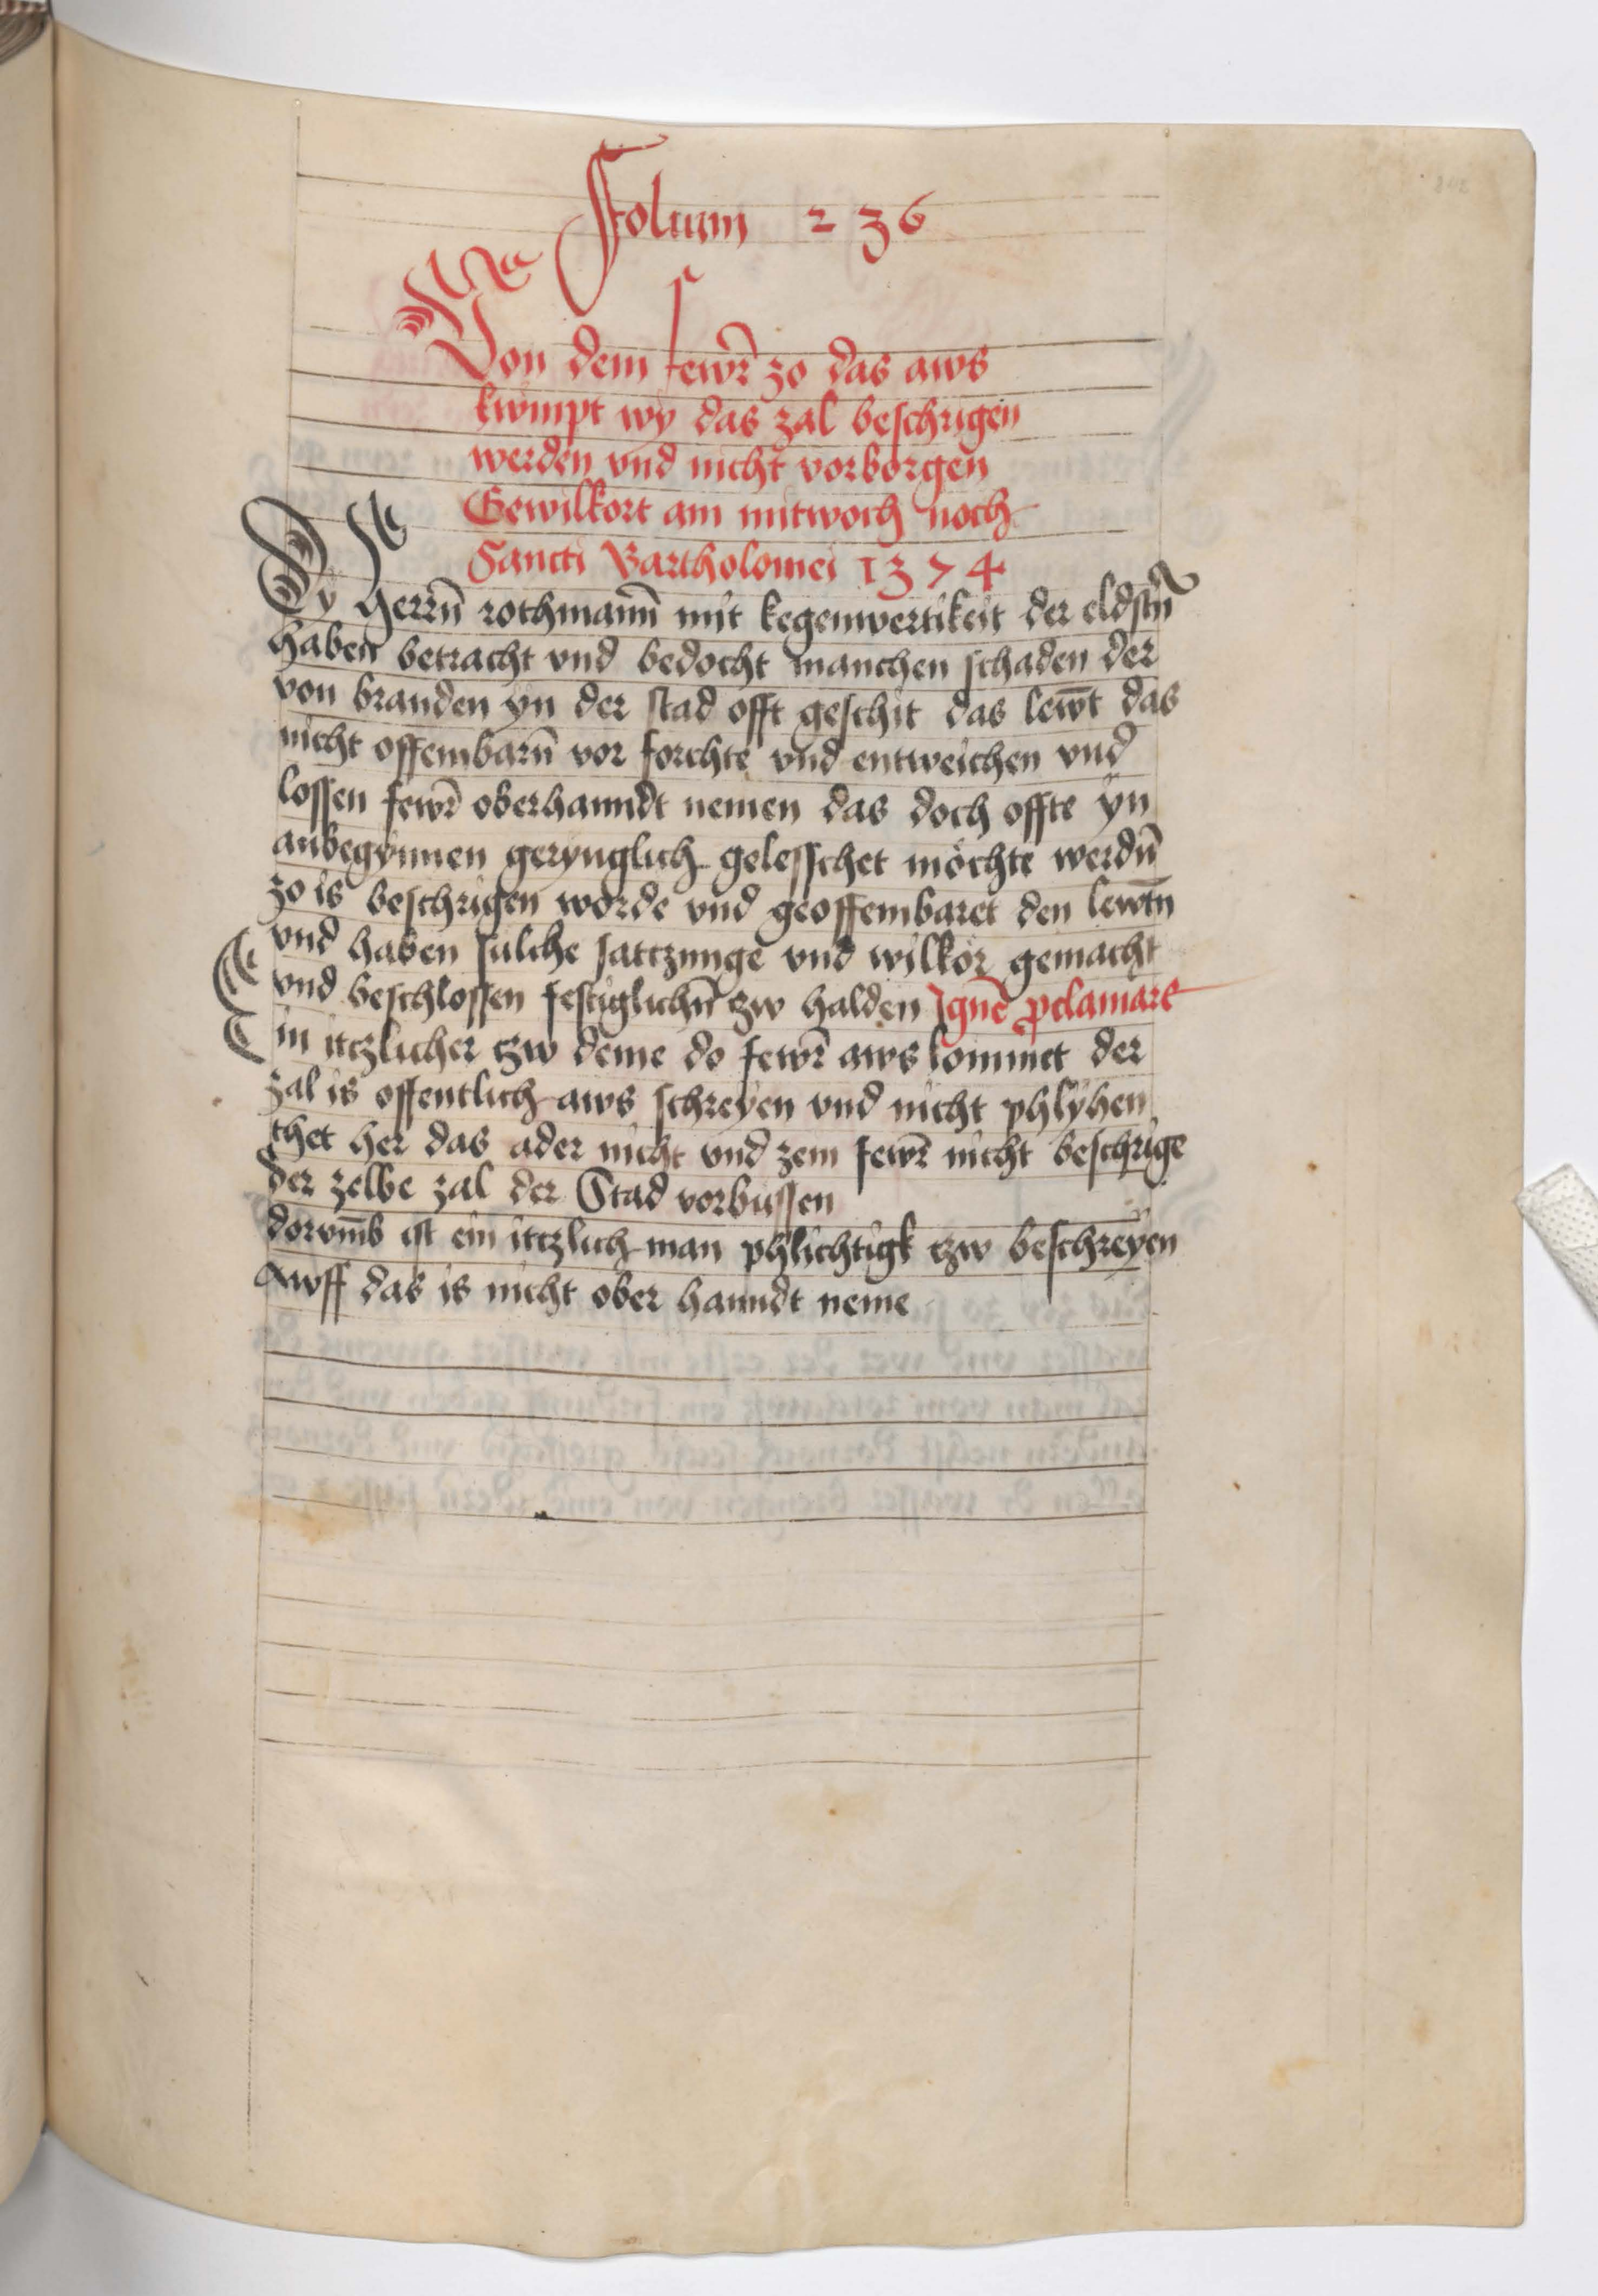 Folium 236
Von dem fewr̄ zo das aws
kwmpt wy das zal beschrigen
werden vnd nicht vorborgen
Gewilkort am mitwoch noch
Sancti Bartholomei 1374
Dy Herrn̄ rothmann̄ mit kegenwertikeit der eldstn̄
haben betracht vnd bedocht manchen schaden der
von branden yn der stad offt geschit das lewt̄ das
nicht offembarn̄ vor forchte vnd entweichen vnd
lossen fewr̄ oberhanndt nemen das doch offte yn
anbegynnen geringlich gelesschet möchte werdn̄
zo is beschrigen worde vnd geoffembaret den lewtn̄
vnd haben sulche sattzunge vnd wilkör gemacht
vnd beschlossen festiglichn̄ tzw halden Ignē ꝓclamare
Ein itzlicher tzw deme do fewr̄ aws kommet der
zal is offentlich aws schreyen vnd nicht phlyhen
thet her das ader nicht vnd zem fewr̄ nicht beschrige
der zelbe zal der Stad vorbussen
dorvm̄b ist ein itzlich man phlichtigk tzw beschreyen
Awff das is nicht ober hanndt neme